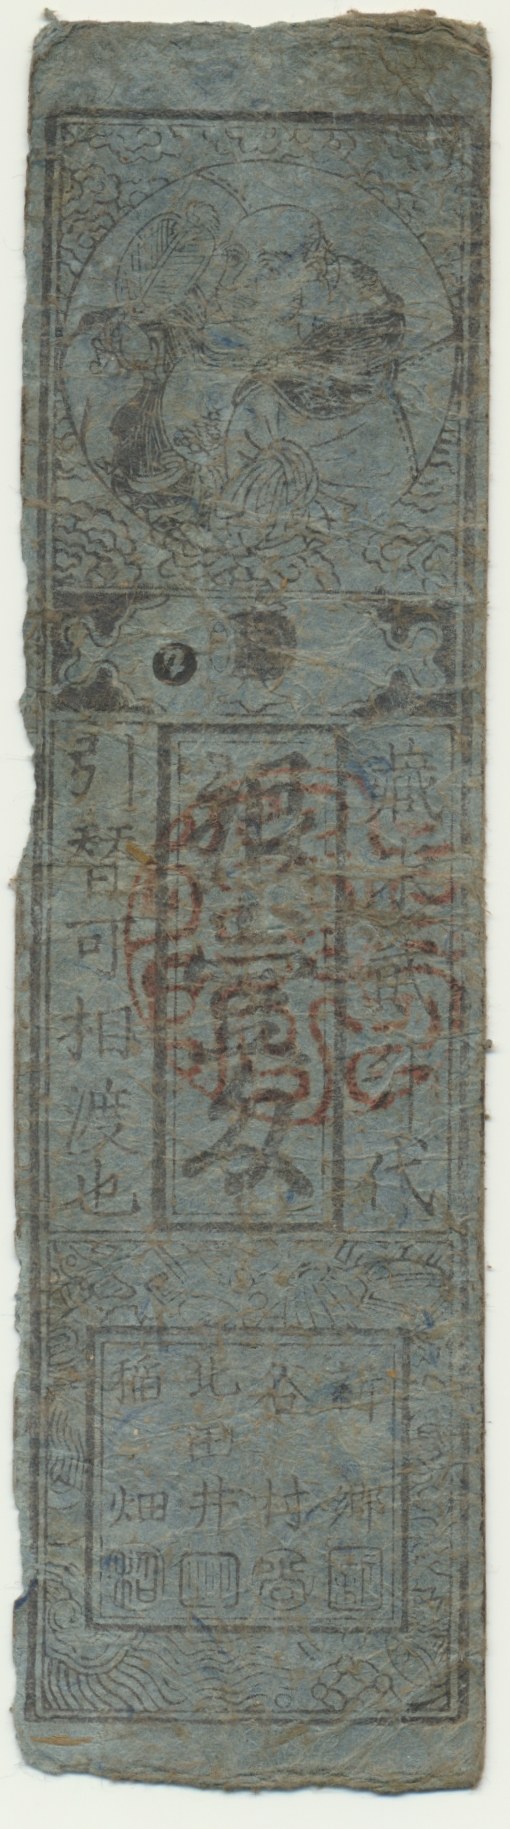 藏米藏代
銀壹匁
引替可相渡也
新郷
谷村
北田井
稲畑